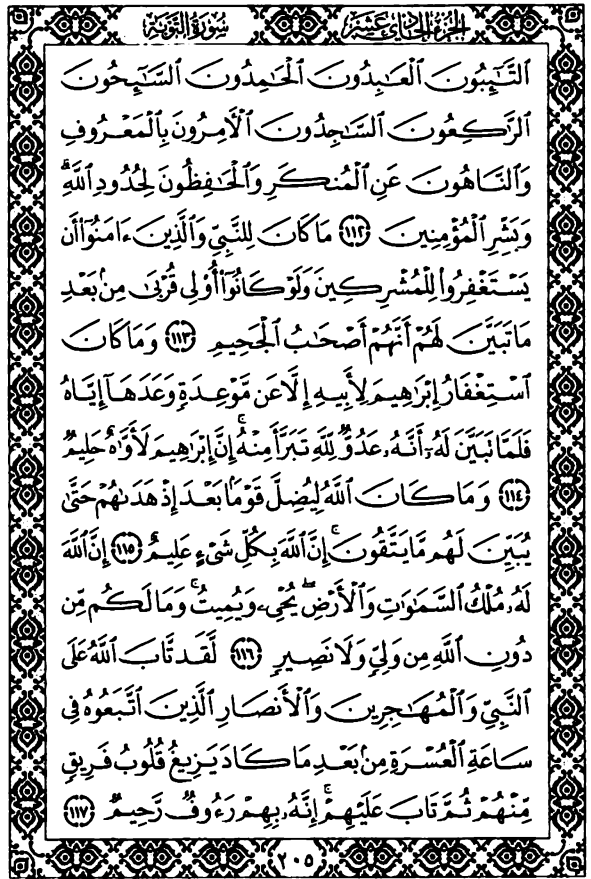 الجزء الحادي عشر سورة التوبة
ٱلتَّـٰٓئِبُونَ ٱلْعَـٰبِدُونَ ٱلْحَـٰمِدُونَ ٱلسَّـٰٓئِحُونَ
ٱلرَّٰكِعُونَ ٱلسَّـٰجِدُونَ ٱلْـَٔامِرُونَ بِٱلْمَعْرُوفِ
وَٱلنَّاهُونَ عَنِ ٱلْمُنكَرِ وَٱلْحَـٰفِظُونَ لِحُدُودِ ٱللَّهِ ۗ
وَبَشِّرِ ٱلْمُؤْمِنِينَ ﴿١١٢﴾ مَا كَانَ لِلنَّبِىِّ وَٱلَّذِينَ ءَامَنُوٓا۟ أَن
يَسْتَغْفِرُوا۟ لِلْمُشْرِكِينَ وَلَوْ كَانُوٓا۟ أُو۟لِى قُرْبَىٰ مِنۢ بَعْدِ
مَا تَبَيَّنَ لَهُمْ أَنَّهُمْ أَصْحَـٰبُ ٱلْجَحِيمِ ﴿١١٣﴾ وَمَا كَانَ
ٱسْتِغْفَارُ إِبْرَٰهِيمَ لِأَبِيهِ إِلَّا عَن مَّوْعِدَةٍ وَعَدَهَآ إِيَّاهُ
فَلَمَّا تَبَيَّنَ لَهُۥٓ أَنَّهُۥ عَدُوٌّ لِّلَّهِ تَبَرَّأَ مِنْهُ ۚ إِنَّ إِبْرَٰهِيمَ لَأَوَّٰهٌ حَلِيمٌ
﴿١١٤﴾ وَمَا كَانَ ٱللَّهُ لِيُضِلَّ قَوْمًۢا بَعْدَ إِذْ هَدَىٰهُمْ حَتَّىٰ
يُبَيِّنَ لَهُم مَّا يَتَّقُونَ ۚ إِنَّ ٱللَّهَ بِكُلِّ شَىْءٍ عَلِيمٌ ﴿١١٥﴾ إِنَّ ٱللَّهَ
لَهُۥ مُلْكُ ٱلسَّمَـٰوَٰتِ وَٱلْأَرْضِ ۖ يُحْىِۦ وَيُمِيتُ ۚ وَمَا لَكُم مِّن
دُونِ ٱللَّهِ مِن وَلِىٍّ وَلَا نَصِيرٍ ﴿١١٦﴾ لَّقَد تَّابَ ٱللَّهُ عَلَى
ٱلنَّبِىِّ وَٱلْمُهَـٰجِرِينَ وَٱلْأَنصَارِ ٱلَّذِينَ ٱتَّبَعُوهُ فِى
سَاعَةِ ٱلْعُسْرَةِ مِنۢ بَعْدِ مَا كَادَ يَزِيغُ قُلُوبُ فَرِيقٍ
مِّنْهُمْ ثُمَّ تَابَ عَلَيْهِمْ ۚ إِنَّهُۥ بِهِمْ رَءُوفٌ رَّحِيمٌ ﴿١١٧﴾
٢٠٥